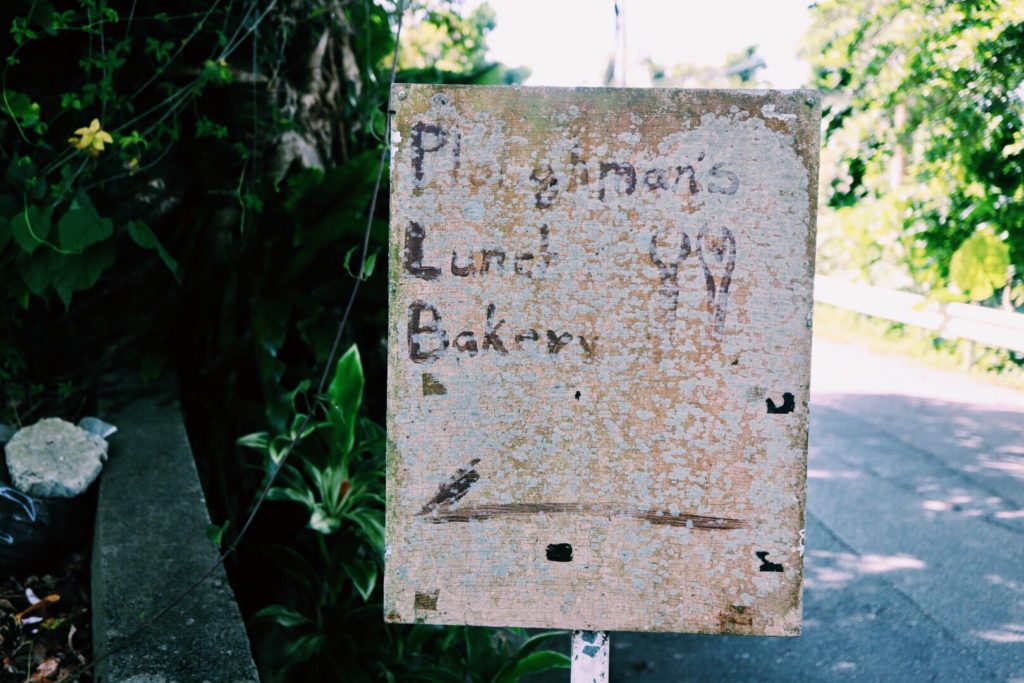 Ploughman's
Lunch
Bakery